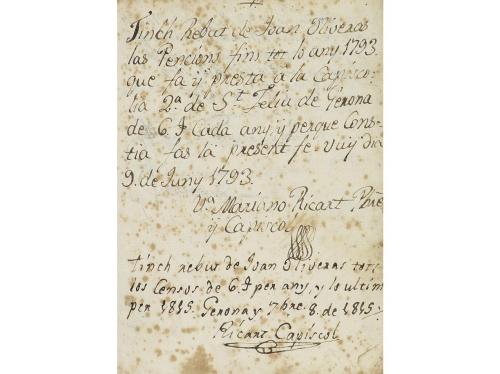 Tinch Rebut de Joan Oliveras
las Pencions fins tot lo any 1793
que fa y presta á la Capisco-
lia 2ª de St. Feliu de Gerona
de 6 ₶ Cada any, y perque Cons-
tia fas la present fe vuy dia
9. de Juny 1793.
Mariano Ricart Pbre
y Capiscol
tinch rebut de Joan Oliveras tots
los Censos de 6 ₶ per any, y lo ultim
per 1815. Gerona y 7bre 8. de 1815
Ricart Capiscol